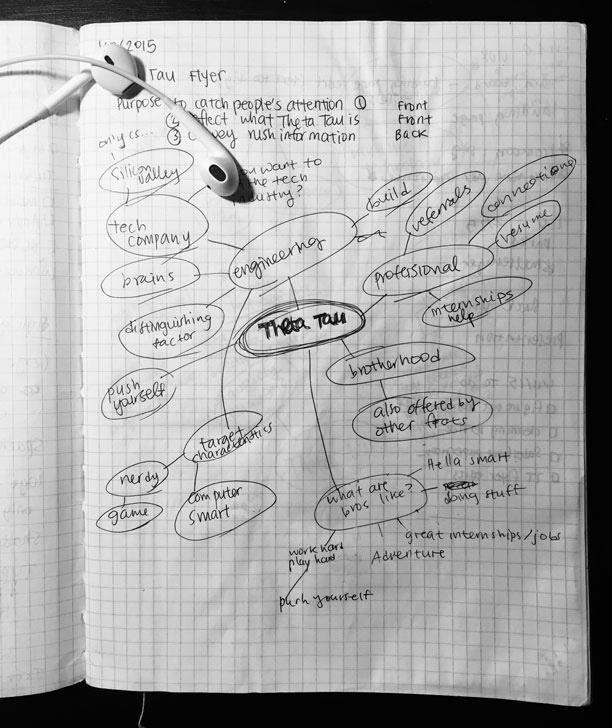 /2015
Tau Flyer
Purpose to catch people's attention ① Front
② reflect what Theta Tau is Front
③ convey rush information Back
only cs...
silicon valley
want to
the tech
industry?
tech
company
brains
distinguishing
factor
push
yourself
engineering
build
referrals
connections
resume
professional
internships
help
Theta Tau
brotherhood
also offered by
other frats
target
characteristics
nerdy
game
computer
smart
what are
bros like?
Hella smart
doing stuff
great internships/jobs
Adventure
work hard
play hard
push yourself